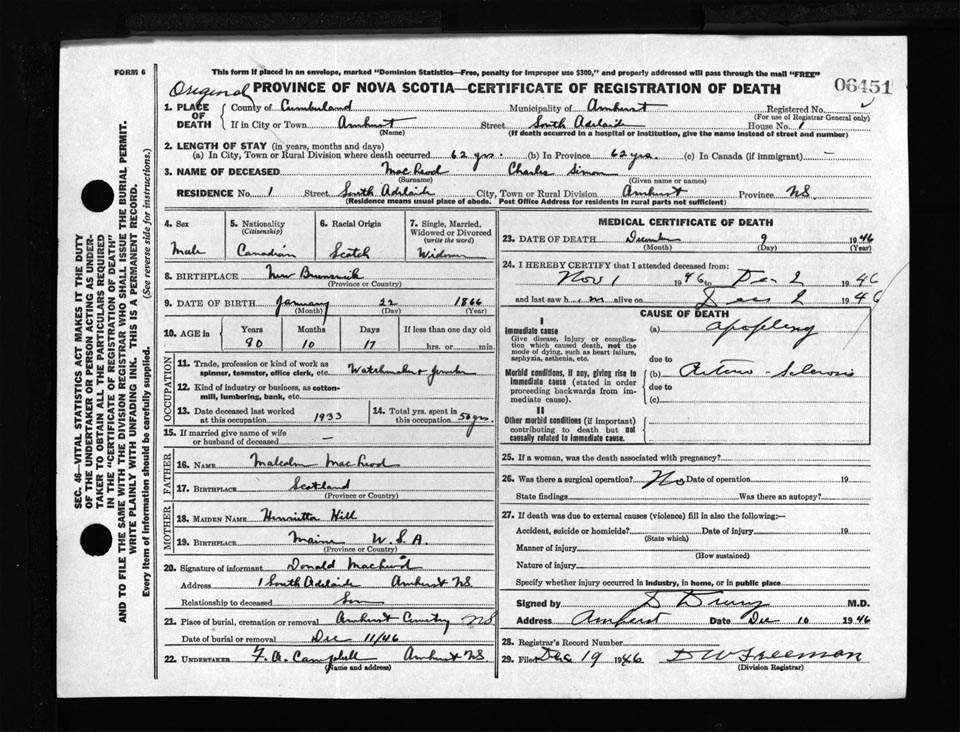 FORM 6
This form if placed in an envelope, marked "Dominion Statistics—Free, penalty for improper use $300," and properly addressed will pass through the mail "FREE"
Original PROVINCE OF NOVA SCOTIA—CERTIFICATE OF REGISTRATION OF DEATH 06451
1. PLACE OF DEATH
County of Cumberland Municipality of Amherst Registered No.
(For use of Registrar General only)
If in City or Town Amherst Street South Adelaide House No. 1
(Name) (If death occurred in a hospital or institution, give the name instead of street and number)
2. LENGTH OF STAY (in years, months and days)
(a) In City, Town or Rural Division where death occurred 62 yrs. (b) In Province 62 yrs. (c) In Canada (if immigrant) —
3. NAME OF DECEASED MacLeod Charles Simon
(Surname) (Given name or names)
RESIDENCE No. 1 Street South Adelaide City, Town or Rural Division Amherst Province NS
(Residence means usual place of abode. Post Office Address for residents in rural parts not sufficient)
4. Sex Male
5. Nationality (Citizenship) Canadian
6. Racial Origin Scotch
7. Single, Married, Widowed or Divorced (write the word) Widower
8. BIRTHPLACE New Brunswick
(Province or Country)
9. DATE OF BIRTH January 22 1866
(Month) (Day) (Year)
10. AGE in Years Months Days If less than one day old
80 10 17 hrs. or min.
OCCUPATION
11. Trade, profession or kind of work as spinner, teamster, office clerk, etc. Watchmaker & Jeweler
12. Kind of industry or business, as cotton-mill, lumbering, bank, etc.
13. Date deceased last worked at this occupation 1933
14. Total yrs. spent in this occupation 50 yrs.
15. If married give name of wife or husband of deceased —
FATHER
16. NAME Malcolm MacLeod
17. BIRTHPLACE Scotland
(Province or Country)
MOTHER
18. MAIDEN NAME Henrietta Hill
19. BIRTHPLACE Maine U.S.A.
(Province or Country)
20. Signature of informant Donald MacLeod
Address 1 South Adelaide Amherst NS
Relationship to deceased Son
21. Place of burial, cremation or removal Amherst Cemetery NS
Date of burial or removal Dec 11/46
22. UNDERTAKER F. A. Campbell Amherst NS.
(Name and address)
MEDICAL CERTIFICATE OF DEATH
23. DATE OF DEATH December 9 1946
(Month) (Day) (Year)
24. I HEREBY CERTIFY that I attended deceased from:
Nov 1 1946 to Dec 2 1946
and last saw him alive on Dec 2 1946
CAUSE OF DEATH
I
Immediate cause (a) apoplexy
Give disease, injury or complication which caused death, not the mode of dying, such as heart failure, asphyxia, asthenia, etc.
due to
Morbid conditions, if any, giving rise to immediate cause (stated in order proceeding backwards from immediate cause). (b) Arterio-Sclerosis
due to
(c)
II
Other morbid conditions (if important) contributing to death but not causally related to immediate cause.
25. If a woman, was the death associated with pregnancy?
26. Was there a surgical operation? No Date of operation 19
State findings Was there an autopsy?
27. If death was due to external causes (violence) fill in also the following:—
Accident, suicide or homicide? Date of injury 19
(State which)
Manner of injury
(How sustained)
Nature of injury
Specify whether injury occurred in industry, in home, or in public place
Signed by D Drury M.D.
Address Amherst Date Dec 10 1946
28. Registrar's Record Number
29. Filed Dec 19 1946 D W Freeman
(Division Registrar)
SEC. 46—VITAL STATISTICS ACT MAKES IT THE DUTY
OF THE UNDERTAKER OR PERSON ACTING AS UNDER-
TAKER TO OBTAIN ALL THE PARTICULARS REQUIRED
IN THE "CERTIFICATE OF REGISTRATION OF DEATH"
AND TO FILE THE SAME WITH THE DIVISION REGISTRAR WHO SHALL ISSUE THE BURIAL PERMIT.
WRITE PLAINLY WITH UNFADING INK. THIS IS A PERMANENT RECORD.
Every item of information should be carefully supplied. (See reverse side for instructions.)